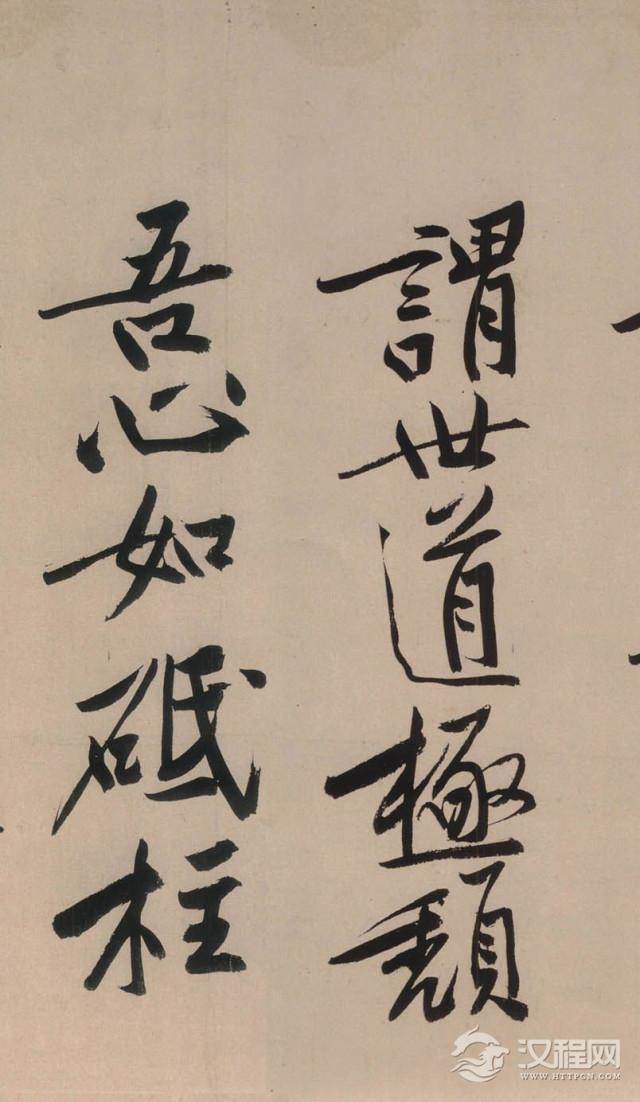 謂世道極頽
吾心如砥柱
汉程网
WWW.HTTPCN.COM